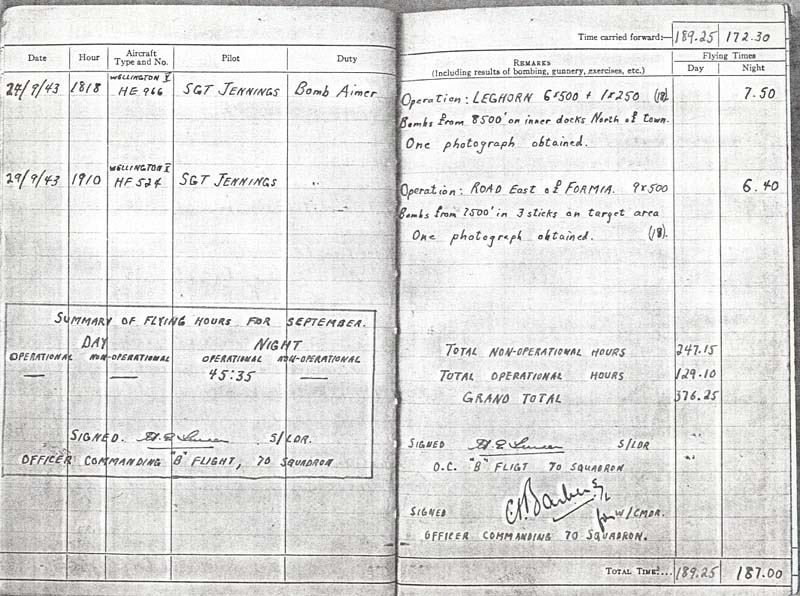 Date Hour Aircraft Type and No. Pilot Duty
24/9/43 1818 WELLINGTON X HE 966 SGT JENNINGS Bomb Aimer
29/9/43 1910 WELLINGTON X HF 524 SGT JENNINGS "
SUMMARY OF FLYING HOURS FOR SEPTEMBER.
DAY NIGHT
OPERATIONAL NON-OPERATIONAL OPERATIONAL NON-OPERATIONAL
— — 45:35 —
SIGNED. S/LDR.
OFFICER COMMANDING "B" FLIGHT, 70 SQUADRON
Time carried forward:— 189.25 172.30
REMARKS
(Including results of bombing, gunnery, exercises, etc.)
Flying Times
Day Night
Operation: LEGHORN 6x500 + 1x250 (18) 7.50
Bombs from 8500' on inner docks North of town.
One photograph obtained.
Operation: ROAD East of FORMIA. 9x500 6.40
Bombs from 7500' in 3 sticks on target area
One photograph obtained. (18).
TOTAL NON-OPERATIONAL HOURS 247.15
TOTAL OPERATIONAL HOURS 129.10
GRAND TOTAL 376.25
SIGNED S/LDR
O.C. "B" FLIGT 70 SQUADRON
SIGNED for W/CMDR.
OFFICER COMMANDING 70 SQUADRON.
TOTAL TIME:... 189.25 187.00